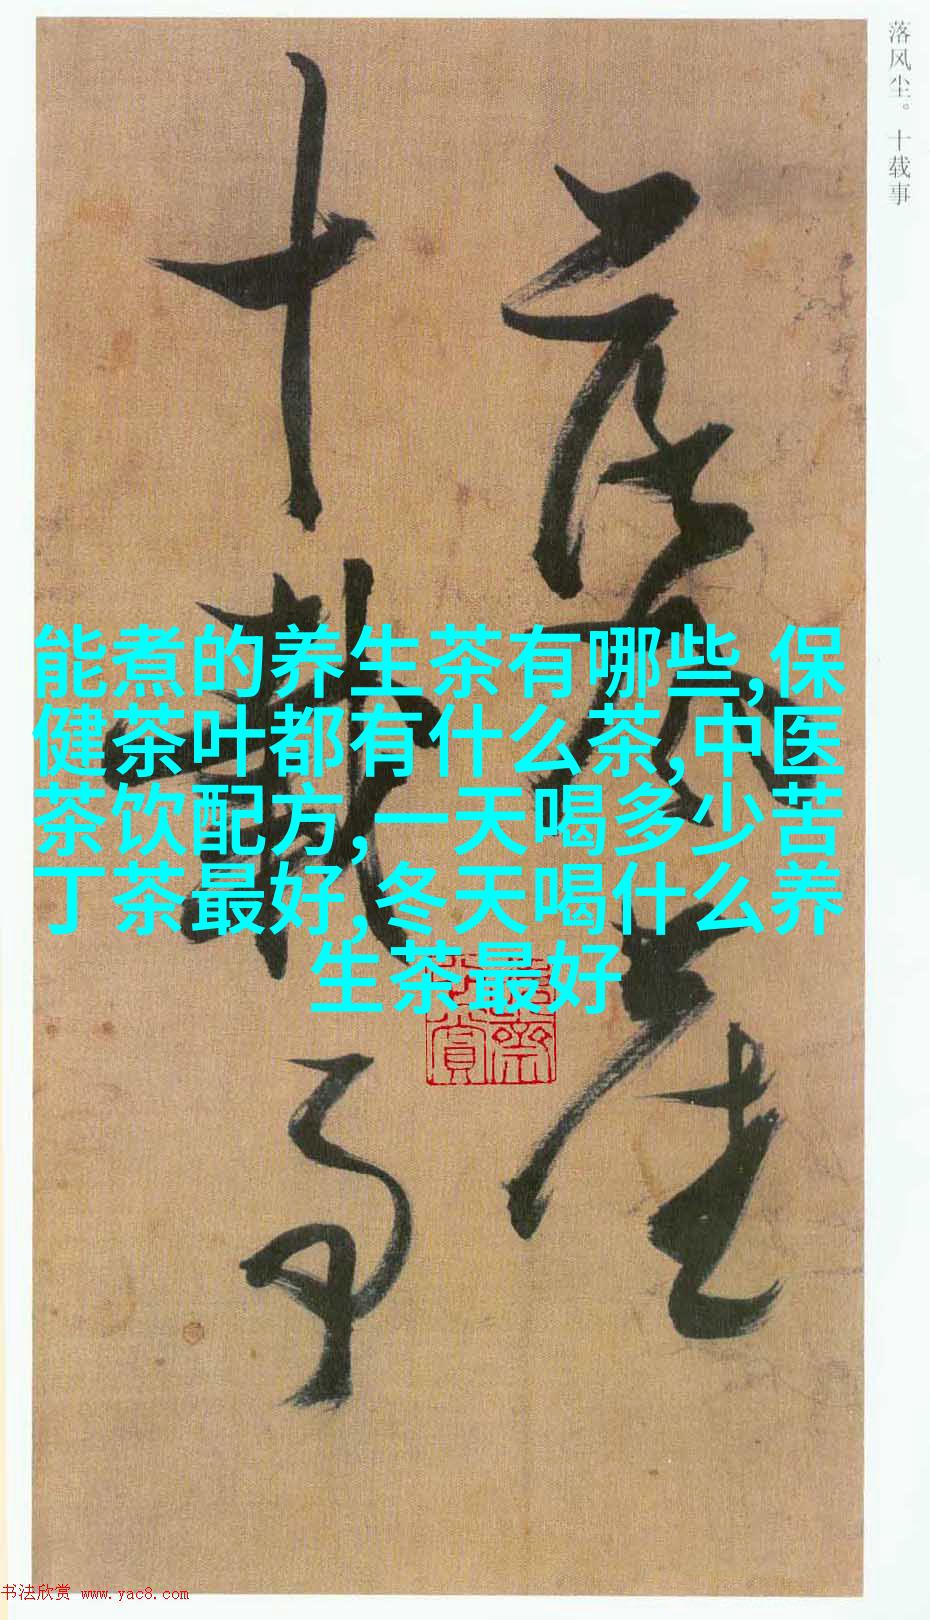 落风尘。十载事
落风尘
十载事
能煮的养生茶有哪些,保
健茶叶都有什么茶,中医
茶饮配方,一天喝多少苦
丁茶最好,冬天喝什么养
生茶最好
书法欣赏 www.yac8.com